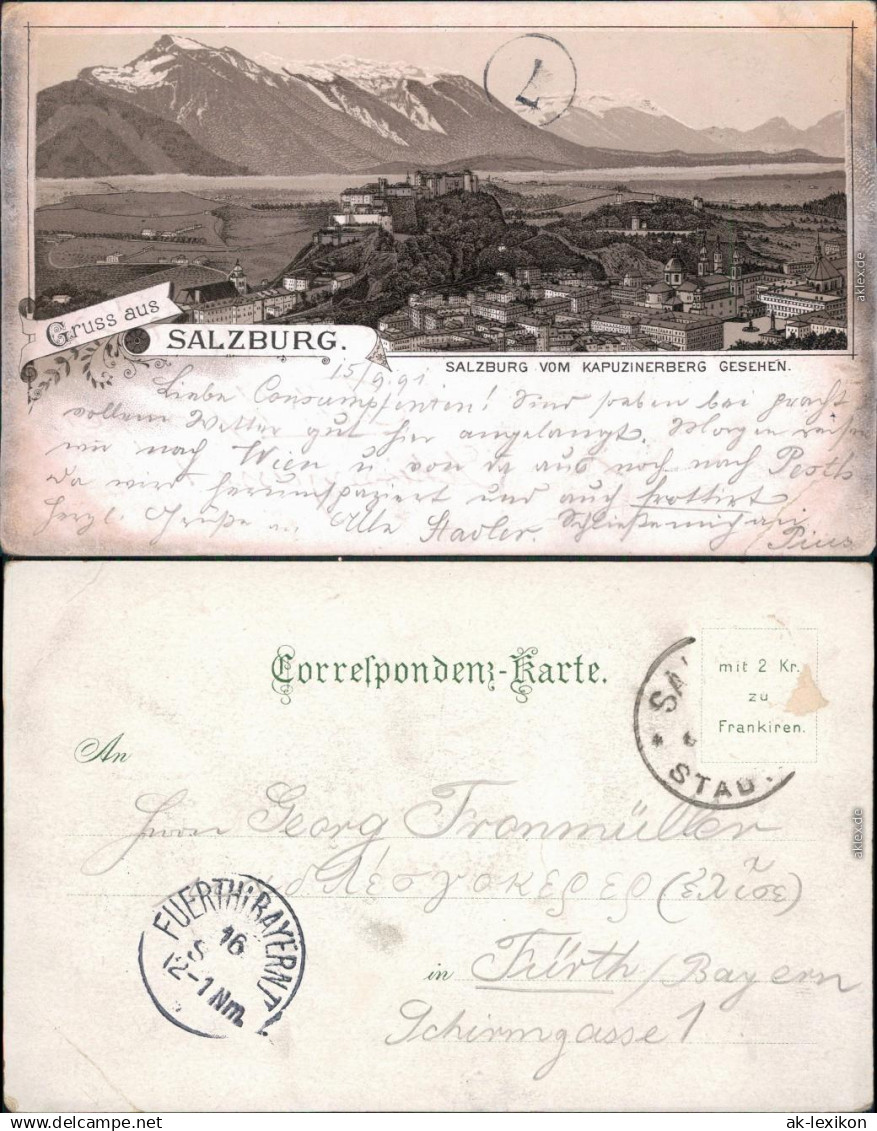 Gruss aus
SALZBURG.
SALZBURG VOM KAPUZINERBERG GESEHEN.
15/9.91
Liebe Consumpfenten! Sind soeben bei pracht
vollem Wetter gut hier angelangt. Morgen reisen
wir nach Wien u von da aus noch nach Pesth
Da wird herumspaziert und auch frottirt
herzl. Grüße an Alle Stadler. Schließe mich an
Pius
7
Correspondenz-Karte.
mit 2 Kr.
zu
Frankiren.
STAD
An
Herrn Georg Fronmüller
in Fürth/Bayern
Schirmgasse 1
FUERTH i. BAYERN I.
16
S
12-1 Nm.
aklex.de
aklex.de
www.ak-lexikon.de
ak-lexikon